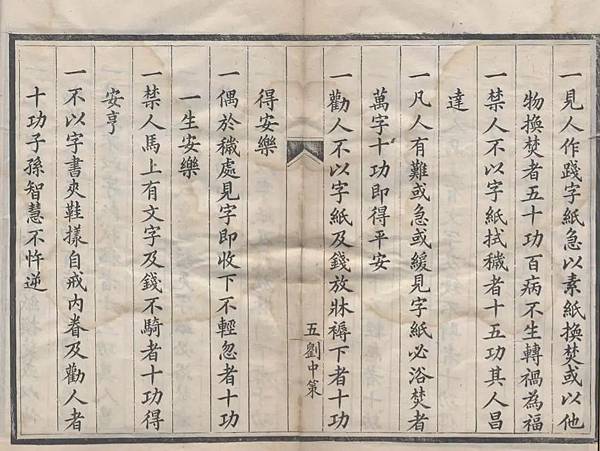 一見人作踐字紙急以素紙換焚或以他
物換焚者五十功百病不生轉禍為福
一禁人不以字紙拭穢者十五功其人昌
達
一凡人有難或急或緩見字紙必浴焚者
萬字十功即得平安
一勸人不以字紙及錢放牀褥下者十功
五劉中策
得安樂
一偶於穢處見字即收下不輕忽者十功
一生安樂
一禁人馬上有文字及錢不騎者十功得
安亨
一不以字書夾鞋樣自戒内眷及勸人者
十功子孫智慧不忤逆